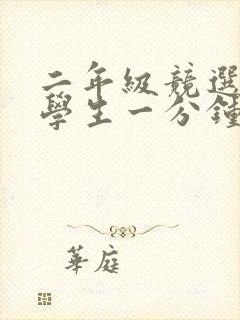 二年級競選
學生一分鐘
華庭